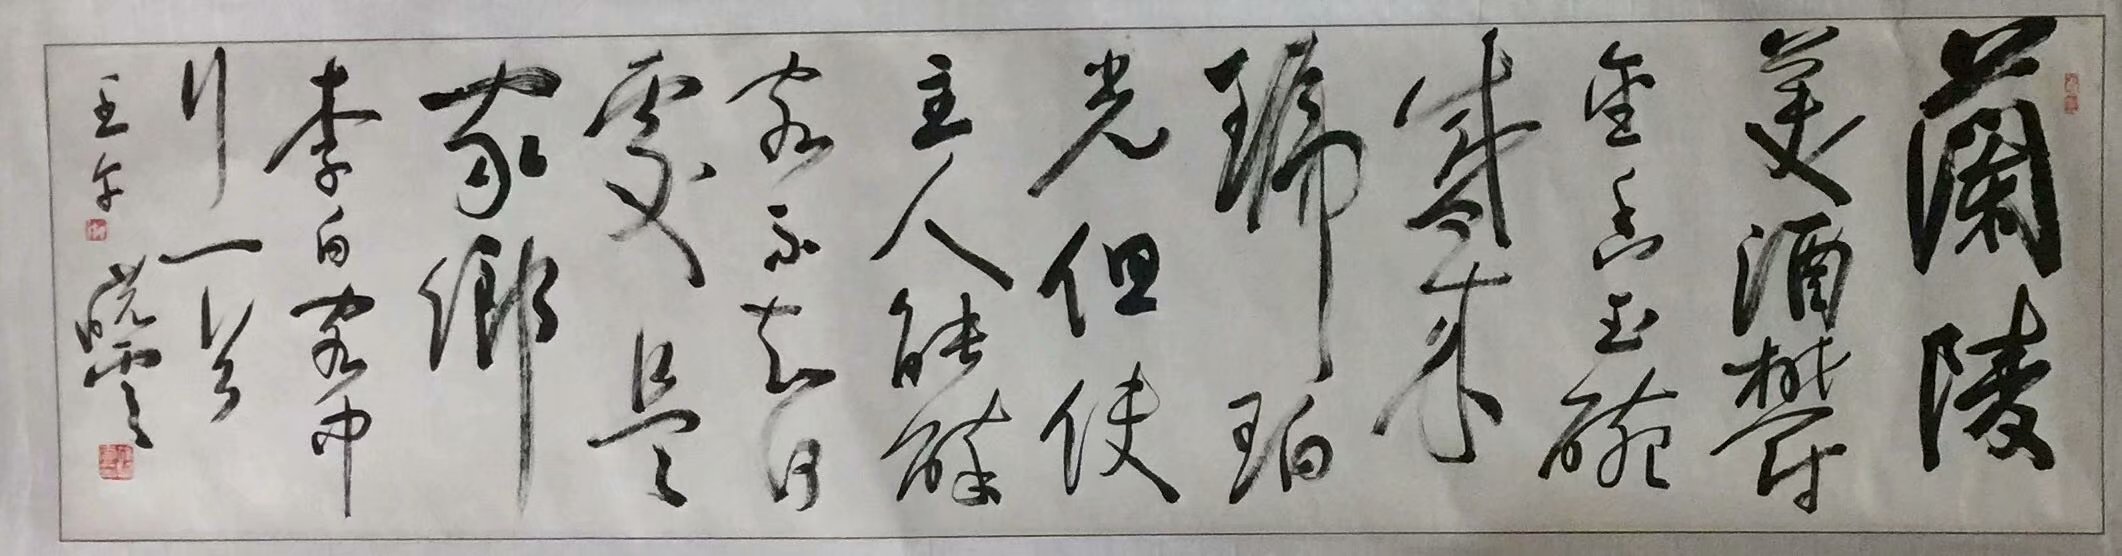 蘭陵
美酒鬱
金香玉碗
盛來
琥珀
光但使
主人能醉
客不知何
處是
家鄉
李白客中
行一首
壬午 曉雲